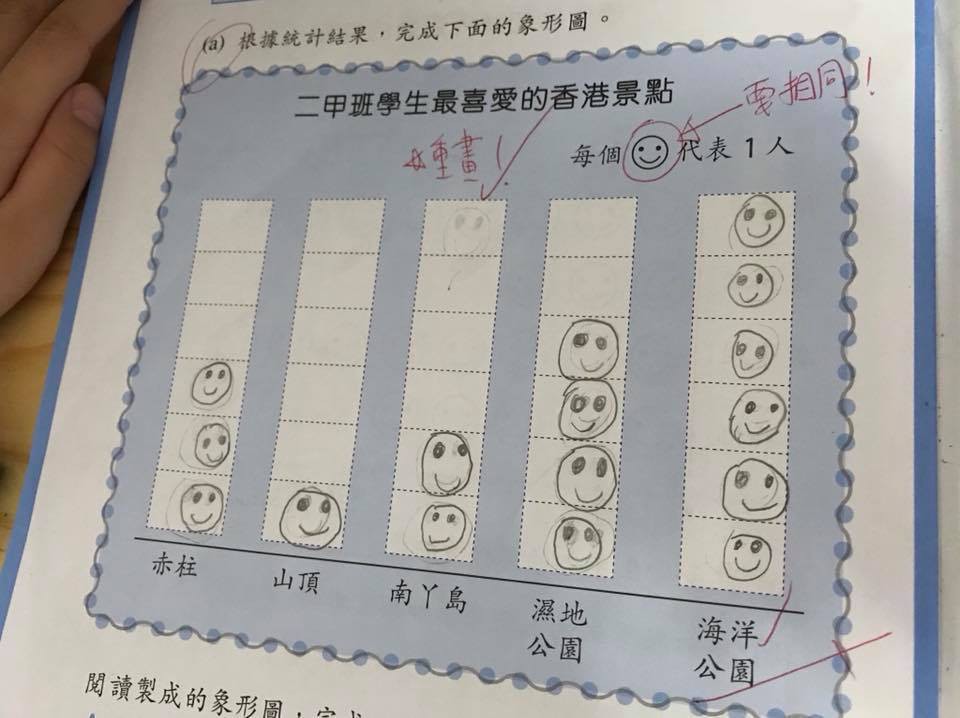 (a) 根據統計結果，完成下面的象形圖。
二甲班學生最喜愛的香港景點
要相同！
重畫！
每個 代表 1 人
赤柱
山頂
南丫島
濕地
公園
海洋
公園
閱讀製成的象形圖，完成